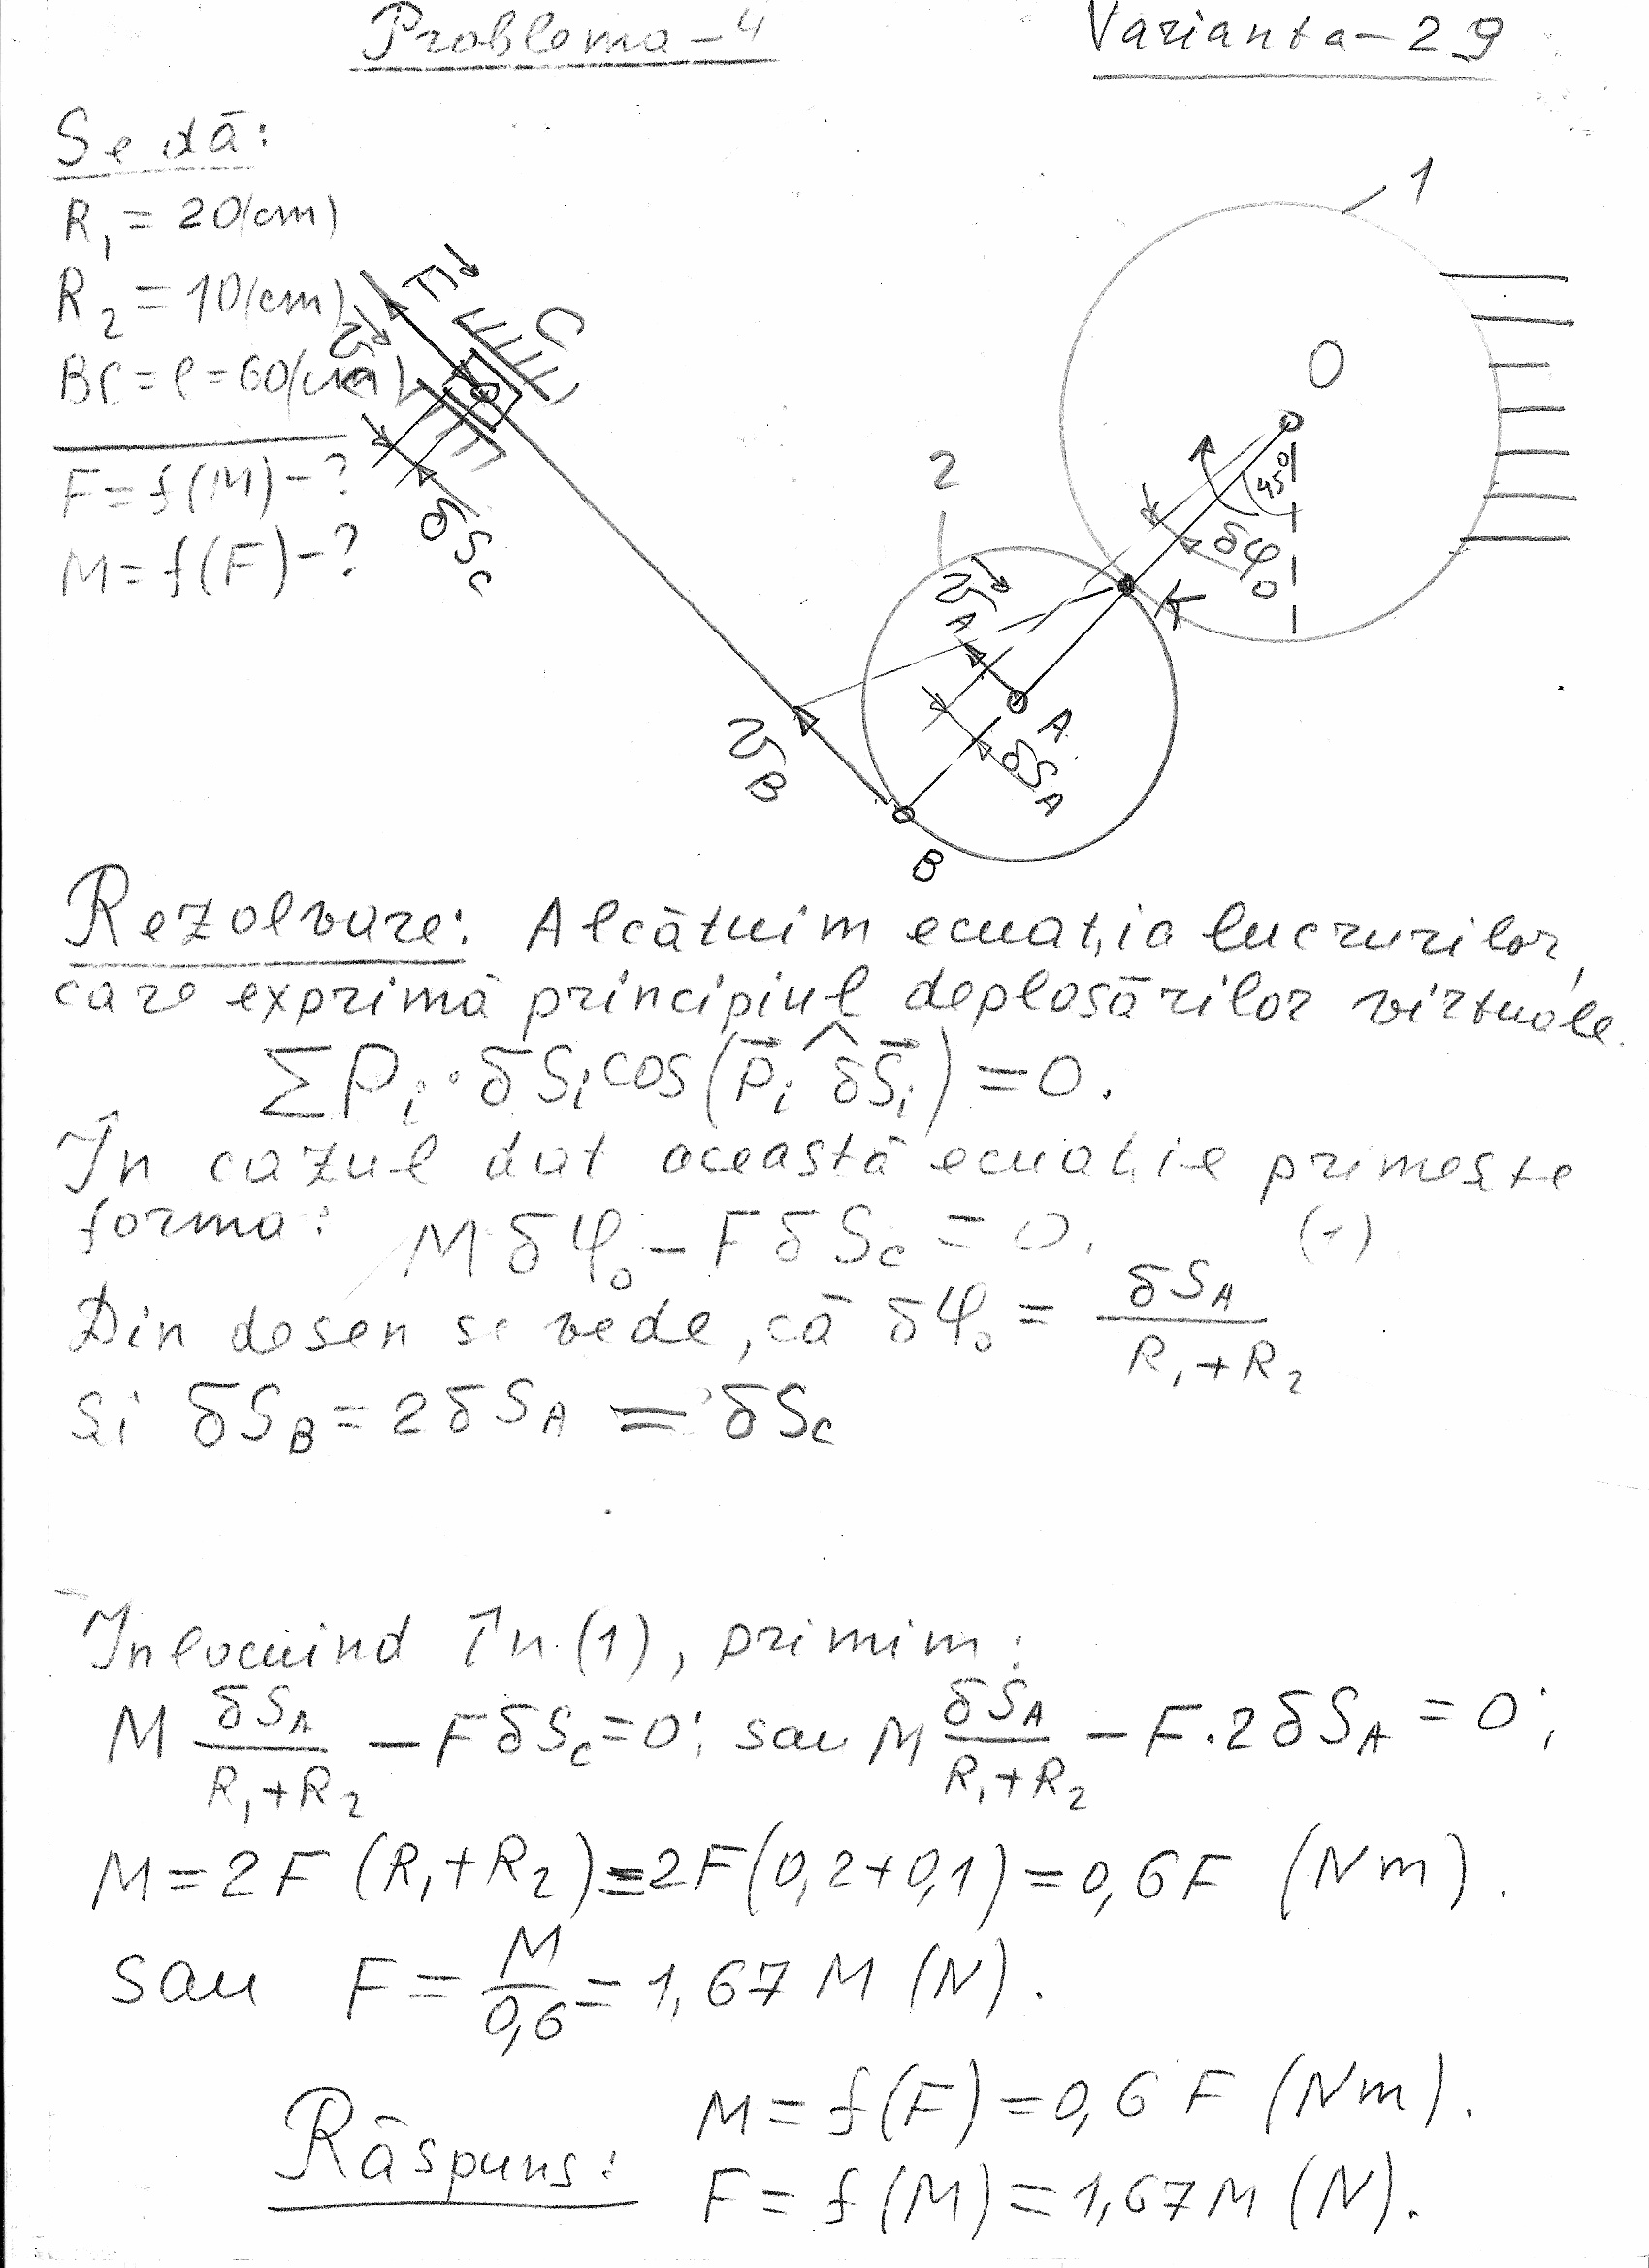 Problema-4
Varianta-29
Se dă:
R₁ = 20(cm)
R₂ = 10(cm)
BC = l = 60(cm)
F = f(M) - ?
M = f(F) - ?
1
O
45°
δφ₀
K
2
v⃗_A
A
δS_A
v⃗_B
B
C
F⃗
v⃗_C
δS_C
Rezolvare: Alcătuim ecuația lucrurilor,
care exprimă principiul deplosărilor virtuale.
ΣPᵢ·δSᵢcos(P⃗ᵢ^δS⃗ᵢ)=0.
În cazul dat această ecuație primește
forma: Mδφ₀ - FδS_C = 0. (1)
Din desen se vede, că δφ₀ = δS_A/(R₁+R₂)
și δS_B = 2δS_A = δS_C
Înlocuind în (1), primim:
M δS_A/(R₁+R₂) - FδS_C = 0; sau M δS_A/(R₁+R₂) - F·2δS_A = 0;
M = 2F(R₁+R₂) = 2F(0,2+0,1) = 0,6F (Nm).
sau F = M/0,6 = 1,67M (N).
Răspuns: M = f(F) = 0,6F (Nm).
F = f(M) = 1,67M (N).